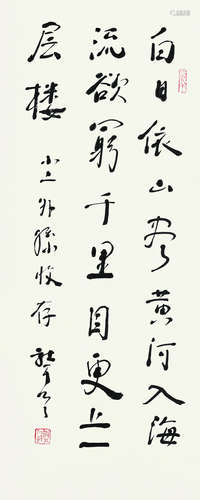 白日依山尽黄河入海
流欲穷千里目更上一
层楼
小二外孙收存